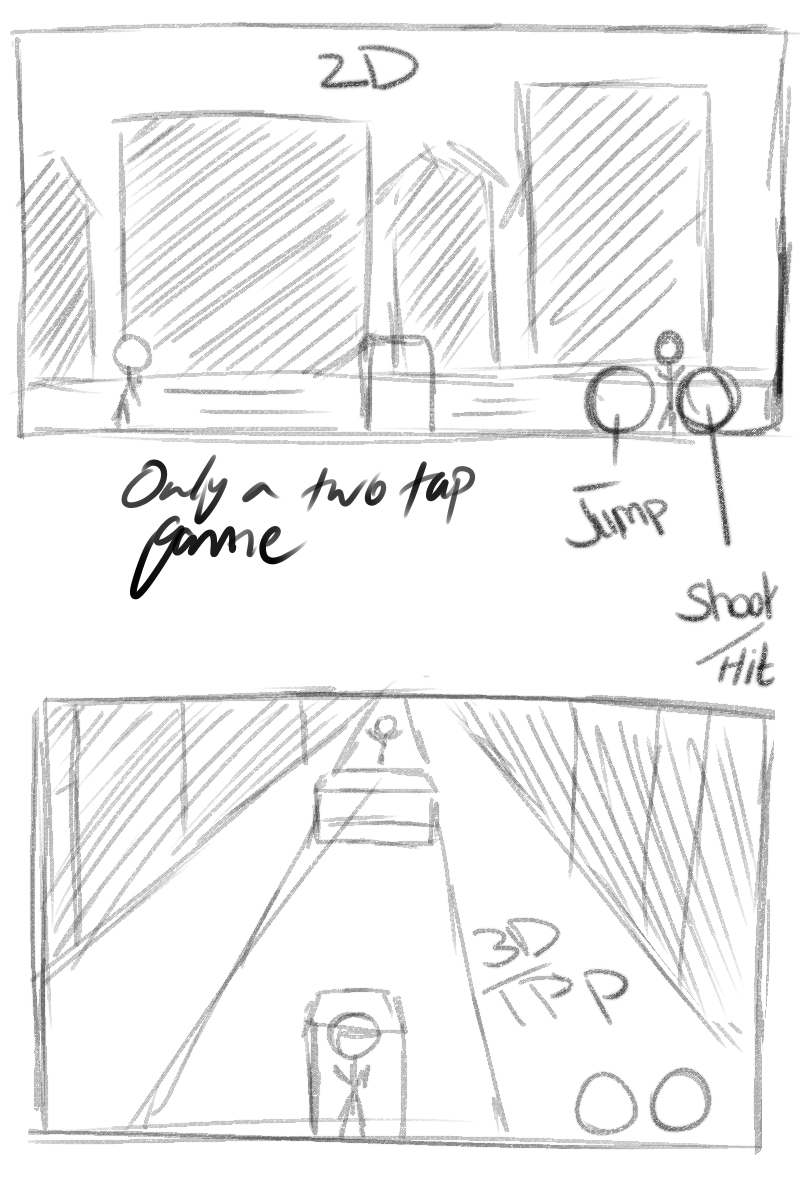 2D
Only a two tap
game
Jump
Shoot
/
Hit
3D
/TPP